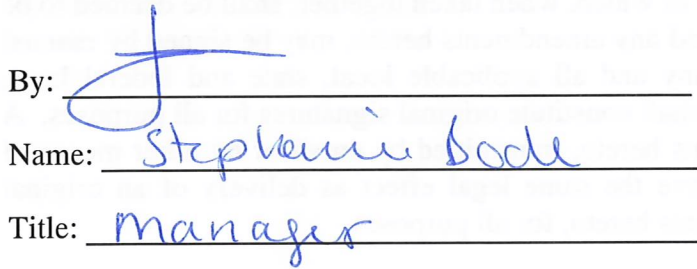 By:
Name: Stephanie Bode
Title: Manager